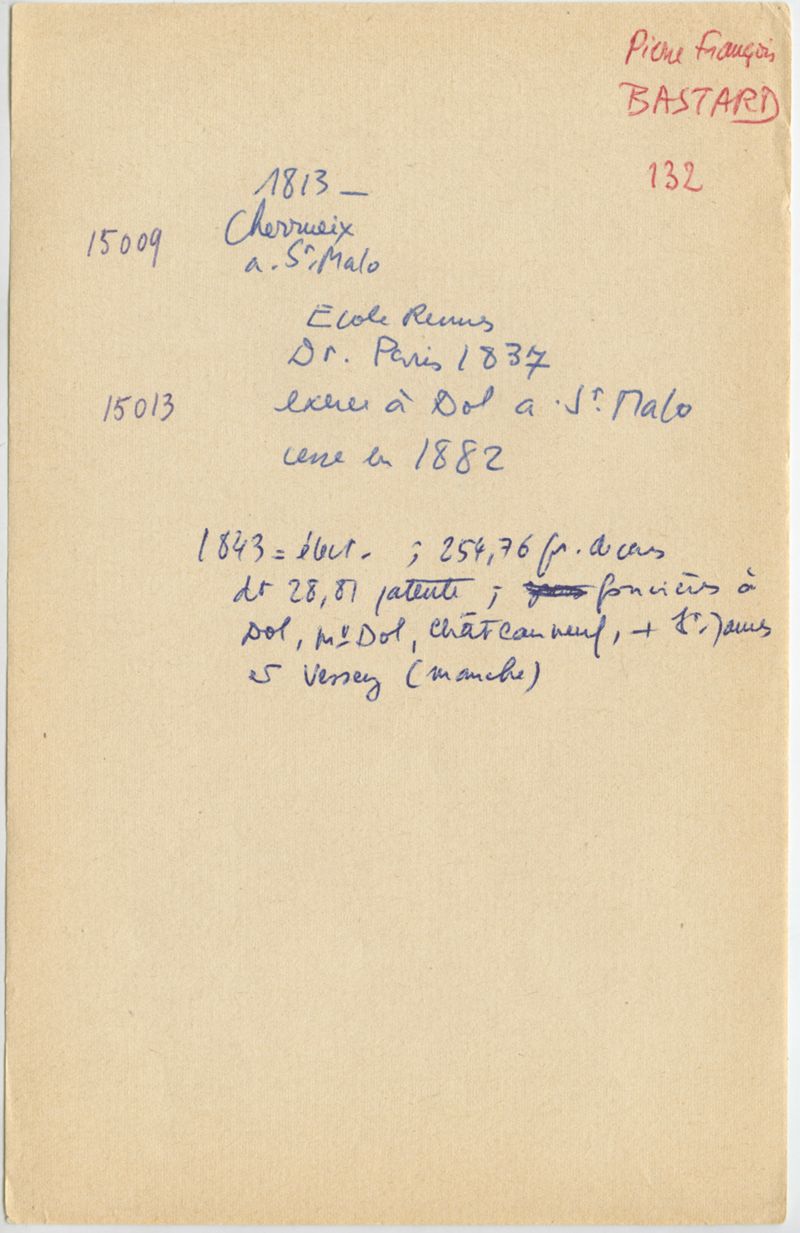 Pierre François
BASTARD
132
1813 –
15009 Cherrueix
a. St. Malo
Ecole Rennes
Dr. Paris 1837
15013 exerce à Dol a. St. Malo
cesse en 1882
1843 = élect. ; 254,76 fr. de cens
dt 28,81 patente ; foncières à
Dol, Mt Dol, Châteauneuf, + St. James
et Vessey (manche)